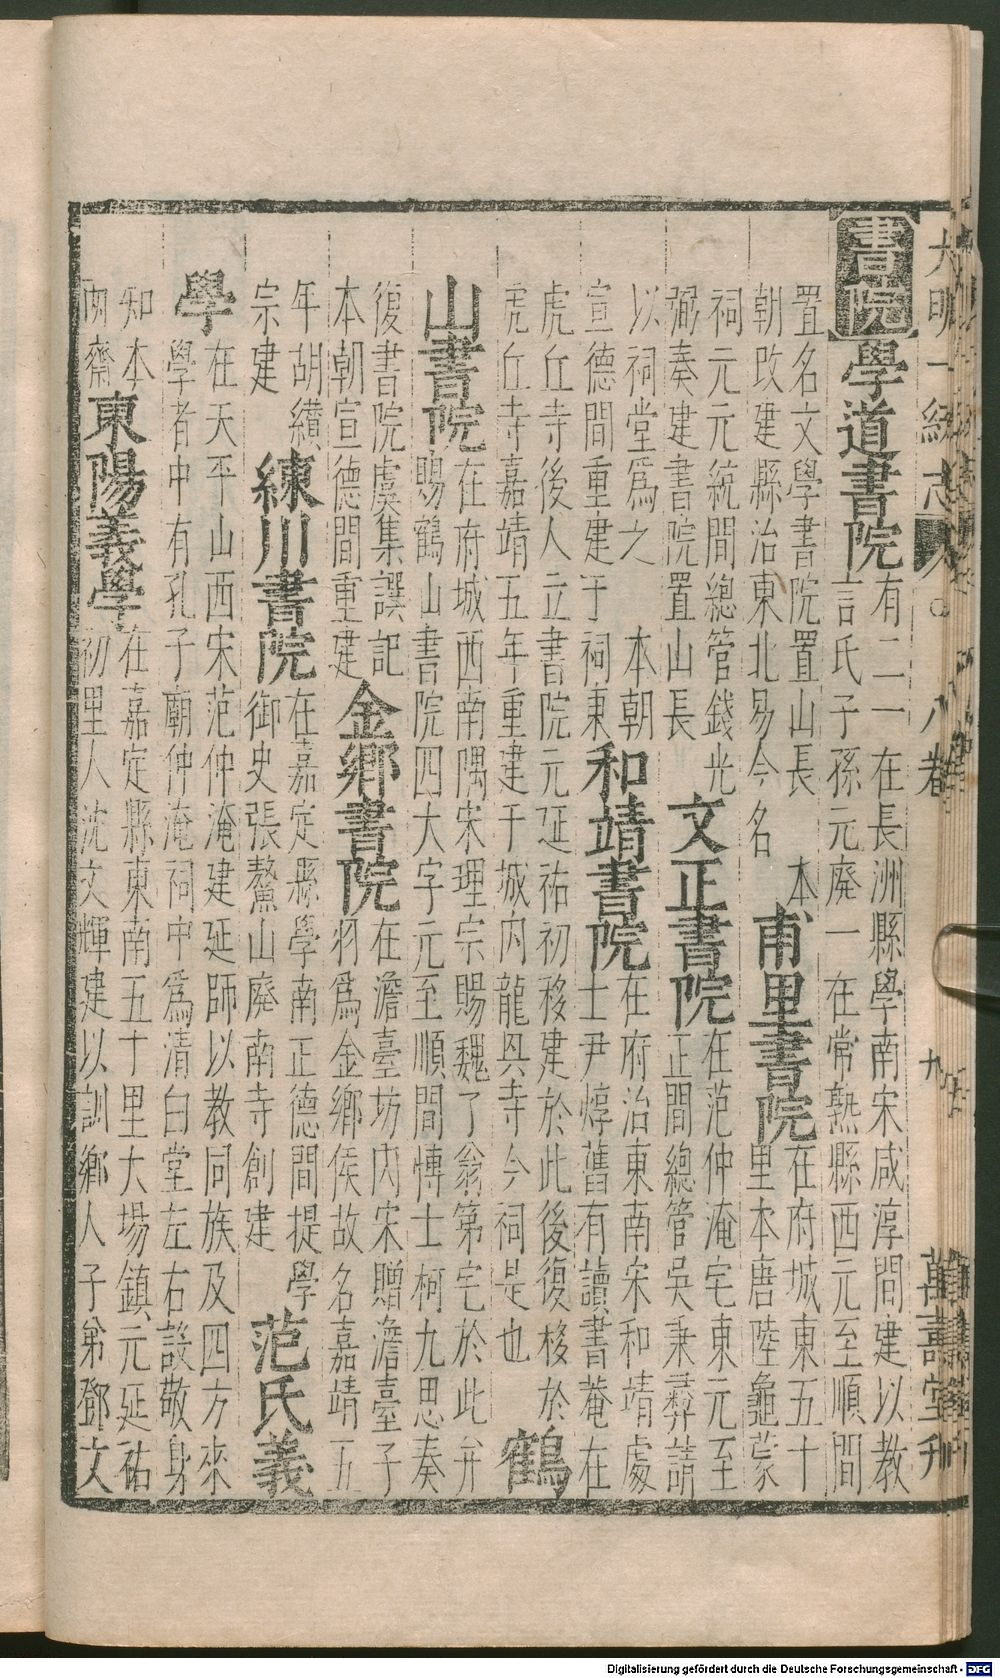 大明一統志 八卷 九 萬壽堂刊
書院 學道書院 有二一在長洲縣學南宋咸淳間建以教
言氏子孫元廢一在常熟縣西元至順間
置名文學書院置山長 本
朝改建縣治東北易今名
甫里書院 在府城東五十
里本唐陸龜蒙
祠元元統間總管錢光
弼奏建書院置山長
文正書院 在范仲淹宅東元至
正間總管吳秉彛請
以祠堂爲之 本朝
宣德間重建于祠東
和靖書院 在府治東南宋和靖處
士尹惇舊有讀書菴在
虎丘寺後人立書院元延祐初移建於此後復移於
虎丘寺嘉靖五年重建于城内龍興寺今祠是也
鶴
山書院 在府城西南隅宋理宗賜魏了翁第宅於此并
賜鶴山書院四大字元至順間博士柯九思奏
復書院虞集譔記
本朝宣德間重建
金鄉書院 在澹臺坊内宋贈澹臺子
羽爲金鄉侯故名嘉靖五
年胡纘
宗建
練川書院 在嘉定縣學南正德間提學
御史張鰲山廢南寺創建
范氏義
學 在天平山西宋范仲淹建延師以教同族及四方來
學者中有孔子廟仲淹祠中爲清白堂左右設敬身
知本
兩齋
東陽義學 在嘉定縣東南五十里大場鎮元延祐
初里人沈文輝建以訓鄉人子弟鄧文
Digitalisierung gefördert durch die Deutsche Forschungsgemeinschaft - DFG